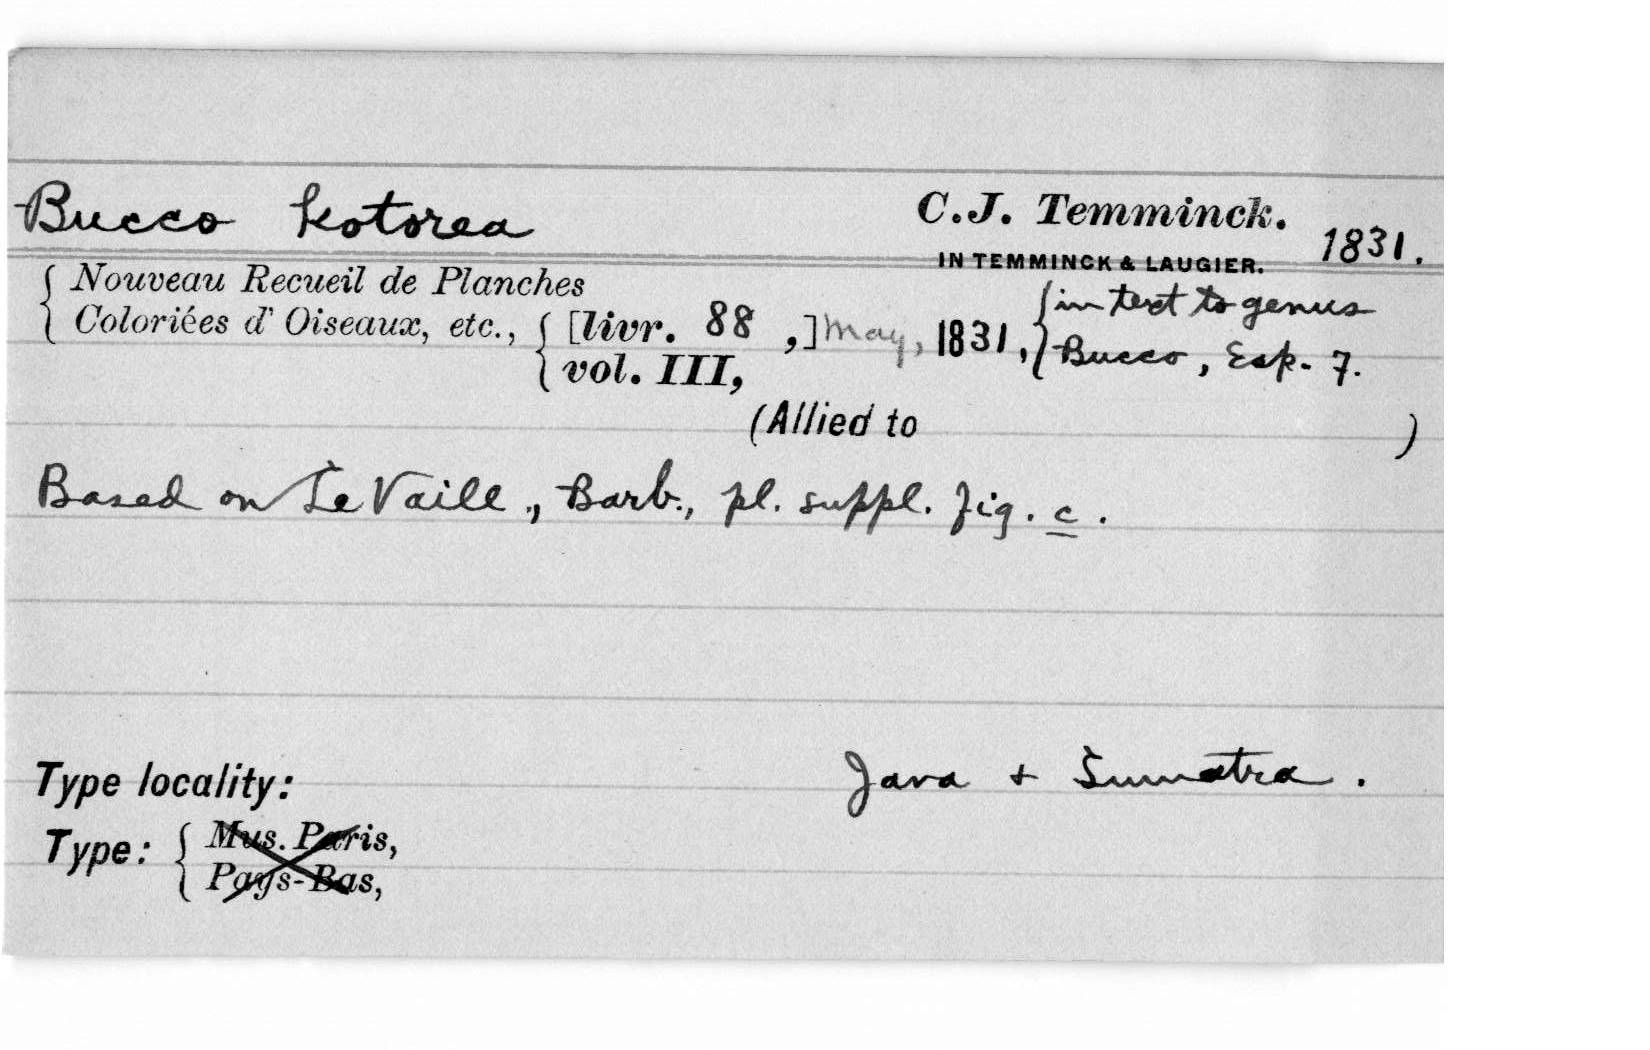 Bucco kotorea C.J. Temminck. 1831.
IN TEMMINCK & LAUGIER.
{ Nouveau Recueil de Planches
Coloriées d' Oiseaux, etc., { [livr. 88 ,] May, 1831, { in text to genus
vol. III, Bucco, Esp. 7.
(Allied to )
Based on Le Vaill., Barb., pl. suppl. fig. c.
Type locality: Java + Sumatra.
Type: { Mus. Paris,
Pays-Bas,